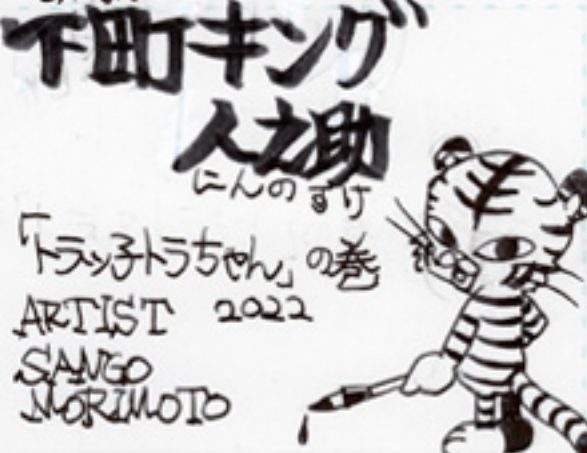 下町キング
人之助
にんのすけ
「トラッ子トラちゃん」の巻
ARTIST 2022
SANGO
MORIMOTO